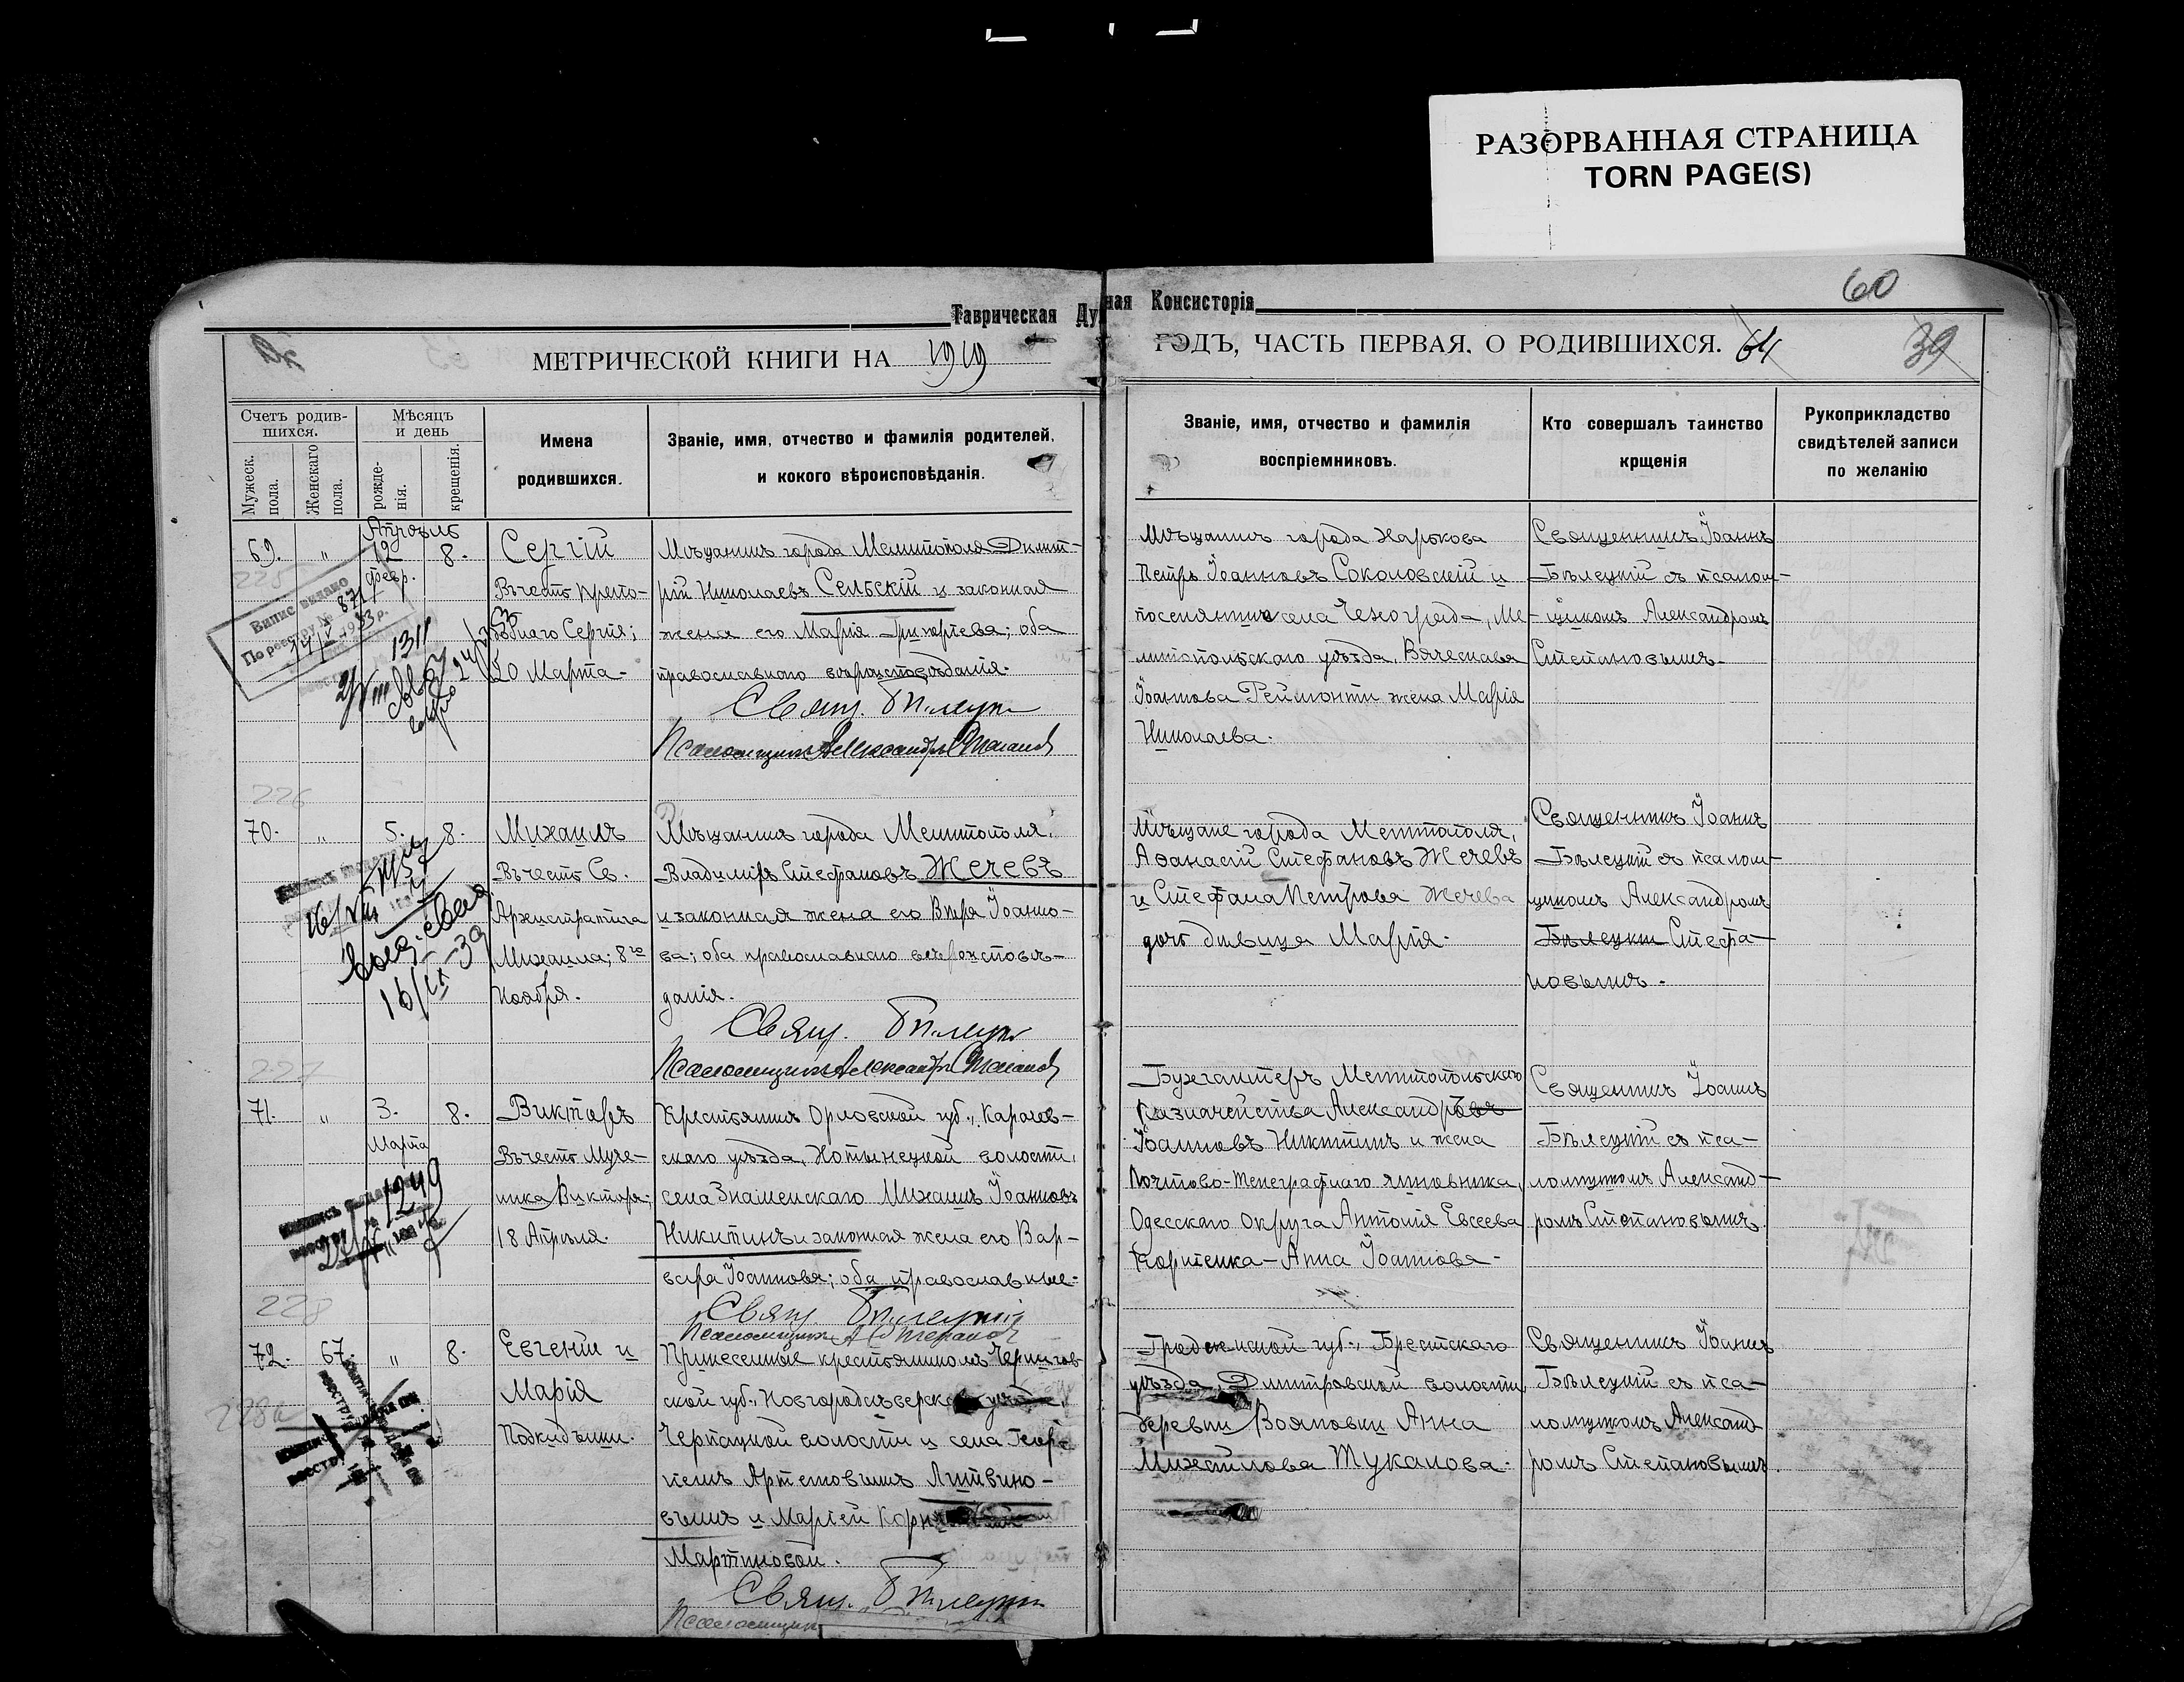 РАЗОРВАННАЯ СТРАНИЦА
TORN PAGE(S)
60
Таврическая Ду
ная Консисторія
МЕТРИЧЕСКОЙ КНИГИ НА 1919
ГОДЪ, ЧАСТЬ ПЕРВАЯ, О РОДИВШИХСЯ. 64
39
Счетъ родив-
шихся.
Мужеск.
пола.
Женскаго
пола.
Мѣсяцъ
и день
рожде-
нія.
крещенія.
Имена
родившихся.
Званіе, имя, отчество и фамилія родителей,
и кокого вѣроисповѣданія.
Званіе, имя, отчество и фамилія
воспріемниковъ.
Кто совершалъ таинство
крщенія
Рукоприкладство
свидѣтелей записи
по желанію
Апрѣль
69. " 12 8.
февр.
225
Випис видано
По реестру № 871
1311
Сергій
Въ честь препо-
добнаго Сергія;
20 Марта-
Мѣщанинъ города Мелитополя Димит-
рій Николаевъ Сельскій и законная
жена его Марія Григоріева; оба
православнаго вѣроисповѣданія.
Свящ. Бѣлецкій
Псаломщикъ Александръ Степановъ
Мѣщанинъ города Харькова
Петръ Іоанновъ Соколовскій и
поселянина села Чехограда, Ме-
литопольскаго уѣзда, Вячеслава
Іоаннова Реймонти жена Марія
Николаева.
Священникъ Іоаннъ
Бѣлецкій съ псалом-
щикомъ Александромъ
Степановымъ.
226
70. " 5. 8.
16/IX-39
Михаилъ
Въ честь Св.
Архистратига
Михаила; 8го
Ноября.
Мѣщанинъ города Мелитополя,
Владиміръ Стефановъ Жечевъ
и законная жена его Вѣра Іоанно-
ва; оба православнаго вѣроисповѣ-
данія.
Свящ. Бѣлецкій
Псаломщикъ Александръ Степановъ
Мѣщане города Мелитополя,
Аѳанасій Стефановъ Жечевъ
и Стефана Петрова Жечева
дочь дѣвица Марія.
Священникъ Іоаннъ
Бѣлецкій съ псалом-
щикомъ Александромъ
Бѣлецки Стефа-
новымъ.
227
71. " 3. 8.
Марта
1249
Викторъ
Въ честь Муче-
ника Виктора;
18 Апрѣля.
Крестьянинъ Орловской губ., Карачев-
скаго уѣзда, Хотынецкой волости,
села Знаменскаго Михаилъ Іоанновъ
Никитинъ и законная жена его Вар-
вара Іоаннова; оба православные.
Свящ. Бѣлецкій
Псаломщикъ А Степановъ
Бухгалтеръ Мелитопольскаго
Казначейства Александръ
Іоанновъ Никитинъ и жена
Почтово-Телеграфнаго чиновника,
Одесскаго Округа Антонія Евсеева
Корпенка-Анна Іоаннова-
Священникъ Іоаннъ
Бѣлецкій съ пса-
ломщикомъ Александ-
ромъ Степановымъ.
228
72. 67. " 8.
228а
Евгеній и
Марія
Подкидыши.
Принесенные крестьяниномъ Чернигов
ской губ., Новгородсѣверск
волости и села Геор-
Артемовымъ Литвино-
вымъ и Маріей Корн
Мартиновой.
Свящ. Бѣлецкій
Псаломщикъ
Гродненской губ., Брестскаго
уѣзда, Дмитровской волости,
деревни Вояновки Анна
Михайлова Жуканова.
Священникъ Іоаннъ
Бѣлецкій съ пса-
ломщикомъ Александ-
ромъ Степановымъ.